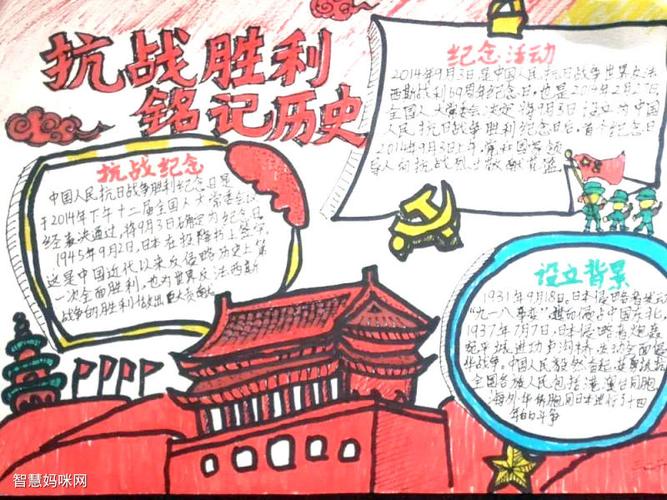 抗战胜利
铭记历史
纪念活动
2014年9月3日是中国人民抗日战争世界反法
西斯战利69周年纪念日,也是2014年2月27日
全国人大常委会决定将9月3日设立为中国
人民抗日战争胜利纪念日后,首个纪念日
2014年9月3日上午,党和国家领
导人向抗战烈士敬献花篮
抗战纪念
中国人民抗日战争胜利纪念日是
于2014年下午十二届全国人大常委会
经表决通过,将9月3日确定为纪念日
1945年9月2日,日本在投降书上签字
这是中国近代以来反侵略历史上第
一次全面胜利,也为世界反法西斯
战争的胜利做出巨大贡献
设立背景
1931年9月18日,日本侵略者制造
"九一八事变"
1937年7月7日,日本侵略者炮轰
宛平城进攻卢沟桥,发动全面侵
华战争。中国人民毅然奋起,
全国各族人民包括港澳台同胞
海外华侨同胞同日本进行了十四
年的斗争
智慧妈咪网